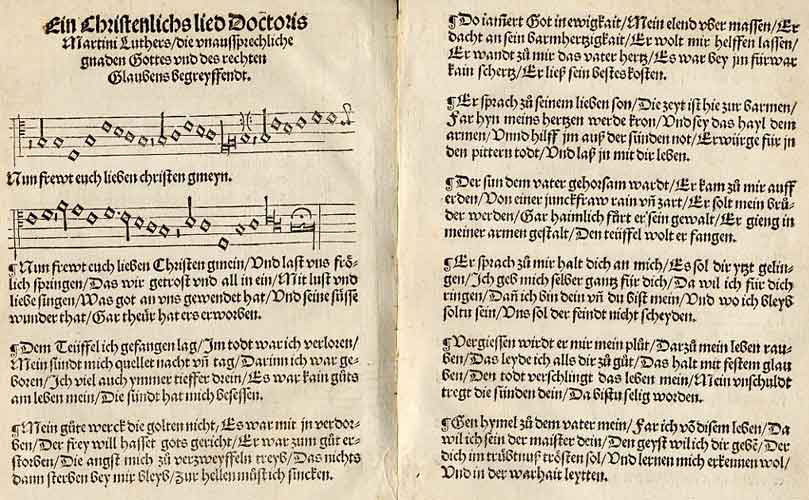 Ein Christenlichs lied Doctoris
Martini Luthers/die vnaussprechliche
gnaden Gottes vnd des rechten
Glaubens begreyffendt.
Nun frewt euch lieben christen gmeyn.
¶Nun frewt euch lieben Christen gmein/Vnd last vns frö-
lich springen/Das wir getrost vnd all in ein/Mit lust vnd
liebe singen/Was got an vns gewendet hat/Vnd seine süsse
wunder that/Gar theür hat ers erworben.
¶Dem Teüffel ich gefangen lag/Im todt war ich verloren/
Mein sündt mich quellet nacht vñ tag/Darinn ich war ge-
boren/Ich viel auch ymmer tieffer drein/Es war kain güts
am leben mein/Die sündt hat mich besessen.
¶Mein güte werck die golten nicht/Es war mit in verdor-
ben/Der frey will hasset gots gericht/Er war zum güt er-
storben/Die angst mich zů verzweyffeln treyb/Das nichts
dann sterben bey mir bleyb/Zur hellen můst ich sincken.
¶Do iamert Got in ewigkait/Mein elend vber massen/Er
dacht an sein barmhertzigkait/Er wolt mir helffen lassen/
Er wandt zů mir das vater hertz/Es war bey jm fürwar
kain schertz/Er ließ sein bestes kosten.
¶Er sprach zů seinem lieben son/Die zeyt ist hie zur barmen/
Far hyn meins hertzen werde kron/Vnd sey das hayl dem
armen/Vnnd hilff jm auß der sünden not/Erwürge für jn
den pittern todt/Vnd laß jn mit dir leben.
¶Der sun dem vater gehorsam wardt/Er kam zů mir auff
erden/Von einer junckfraw rain vñ zart/Er solt mein brů-
der werden/Gar haimlich fürt er sein gewalt/Er gieng in
meiner armen gestalt/Den teüffel wolt er fangen.
¶Er sprach zů mir halt dich an mich/Es sol dir ytzt gelin-
gen/Ich geb mich selber gantz für dich/Da wil ich für dich
ringen/Dañ ich bin dein vñ du bist mein/Vnd wo ich bleyb
soltu sein/Vns sol der feindt nicht scheyden.
¶Vergiessen wirdt er mir mein plůt/Darzů mein leben rau-
ben/Das leyde ich alls dir zů gůt/Das halt mit festem glau
ben/Den todt verschlingt das leben mein/Mein vnschuldt
tregt die sünden dein/Da bistu selig worden.
¶Gen hymel zů dem vater mein/Far ich võ disem leben/Da
wil ich sein der maister dein/Den geyst wil ich dir gebẽ/Der
dich im trübtnuß trösten sol/Vnd lernen mich erkennen wol/
Vnd in der warhait leytten.